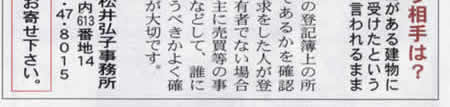 相手は？
がある建物に
受けたという
言われるまま
の登記簿上の所
であるかを確認
求をした人が登
有者でない場合
主に売買等の事
などして、誰に
うべきかよく確
が大切です。
松井弘子事務所
内613番地14
・47・8015
お寄せ下さい。